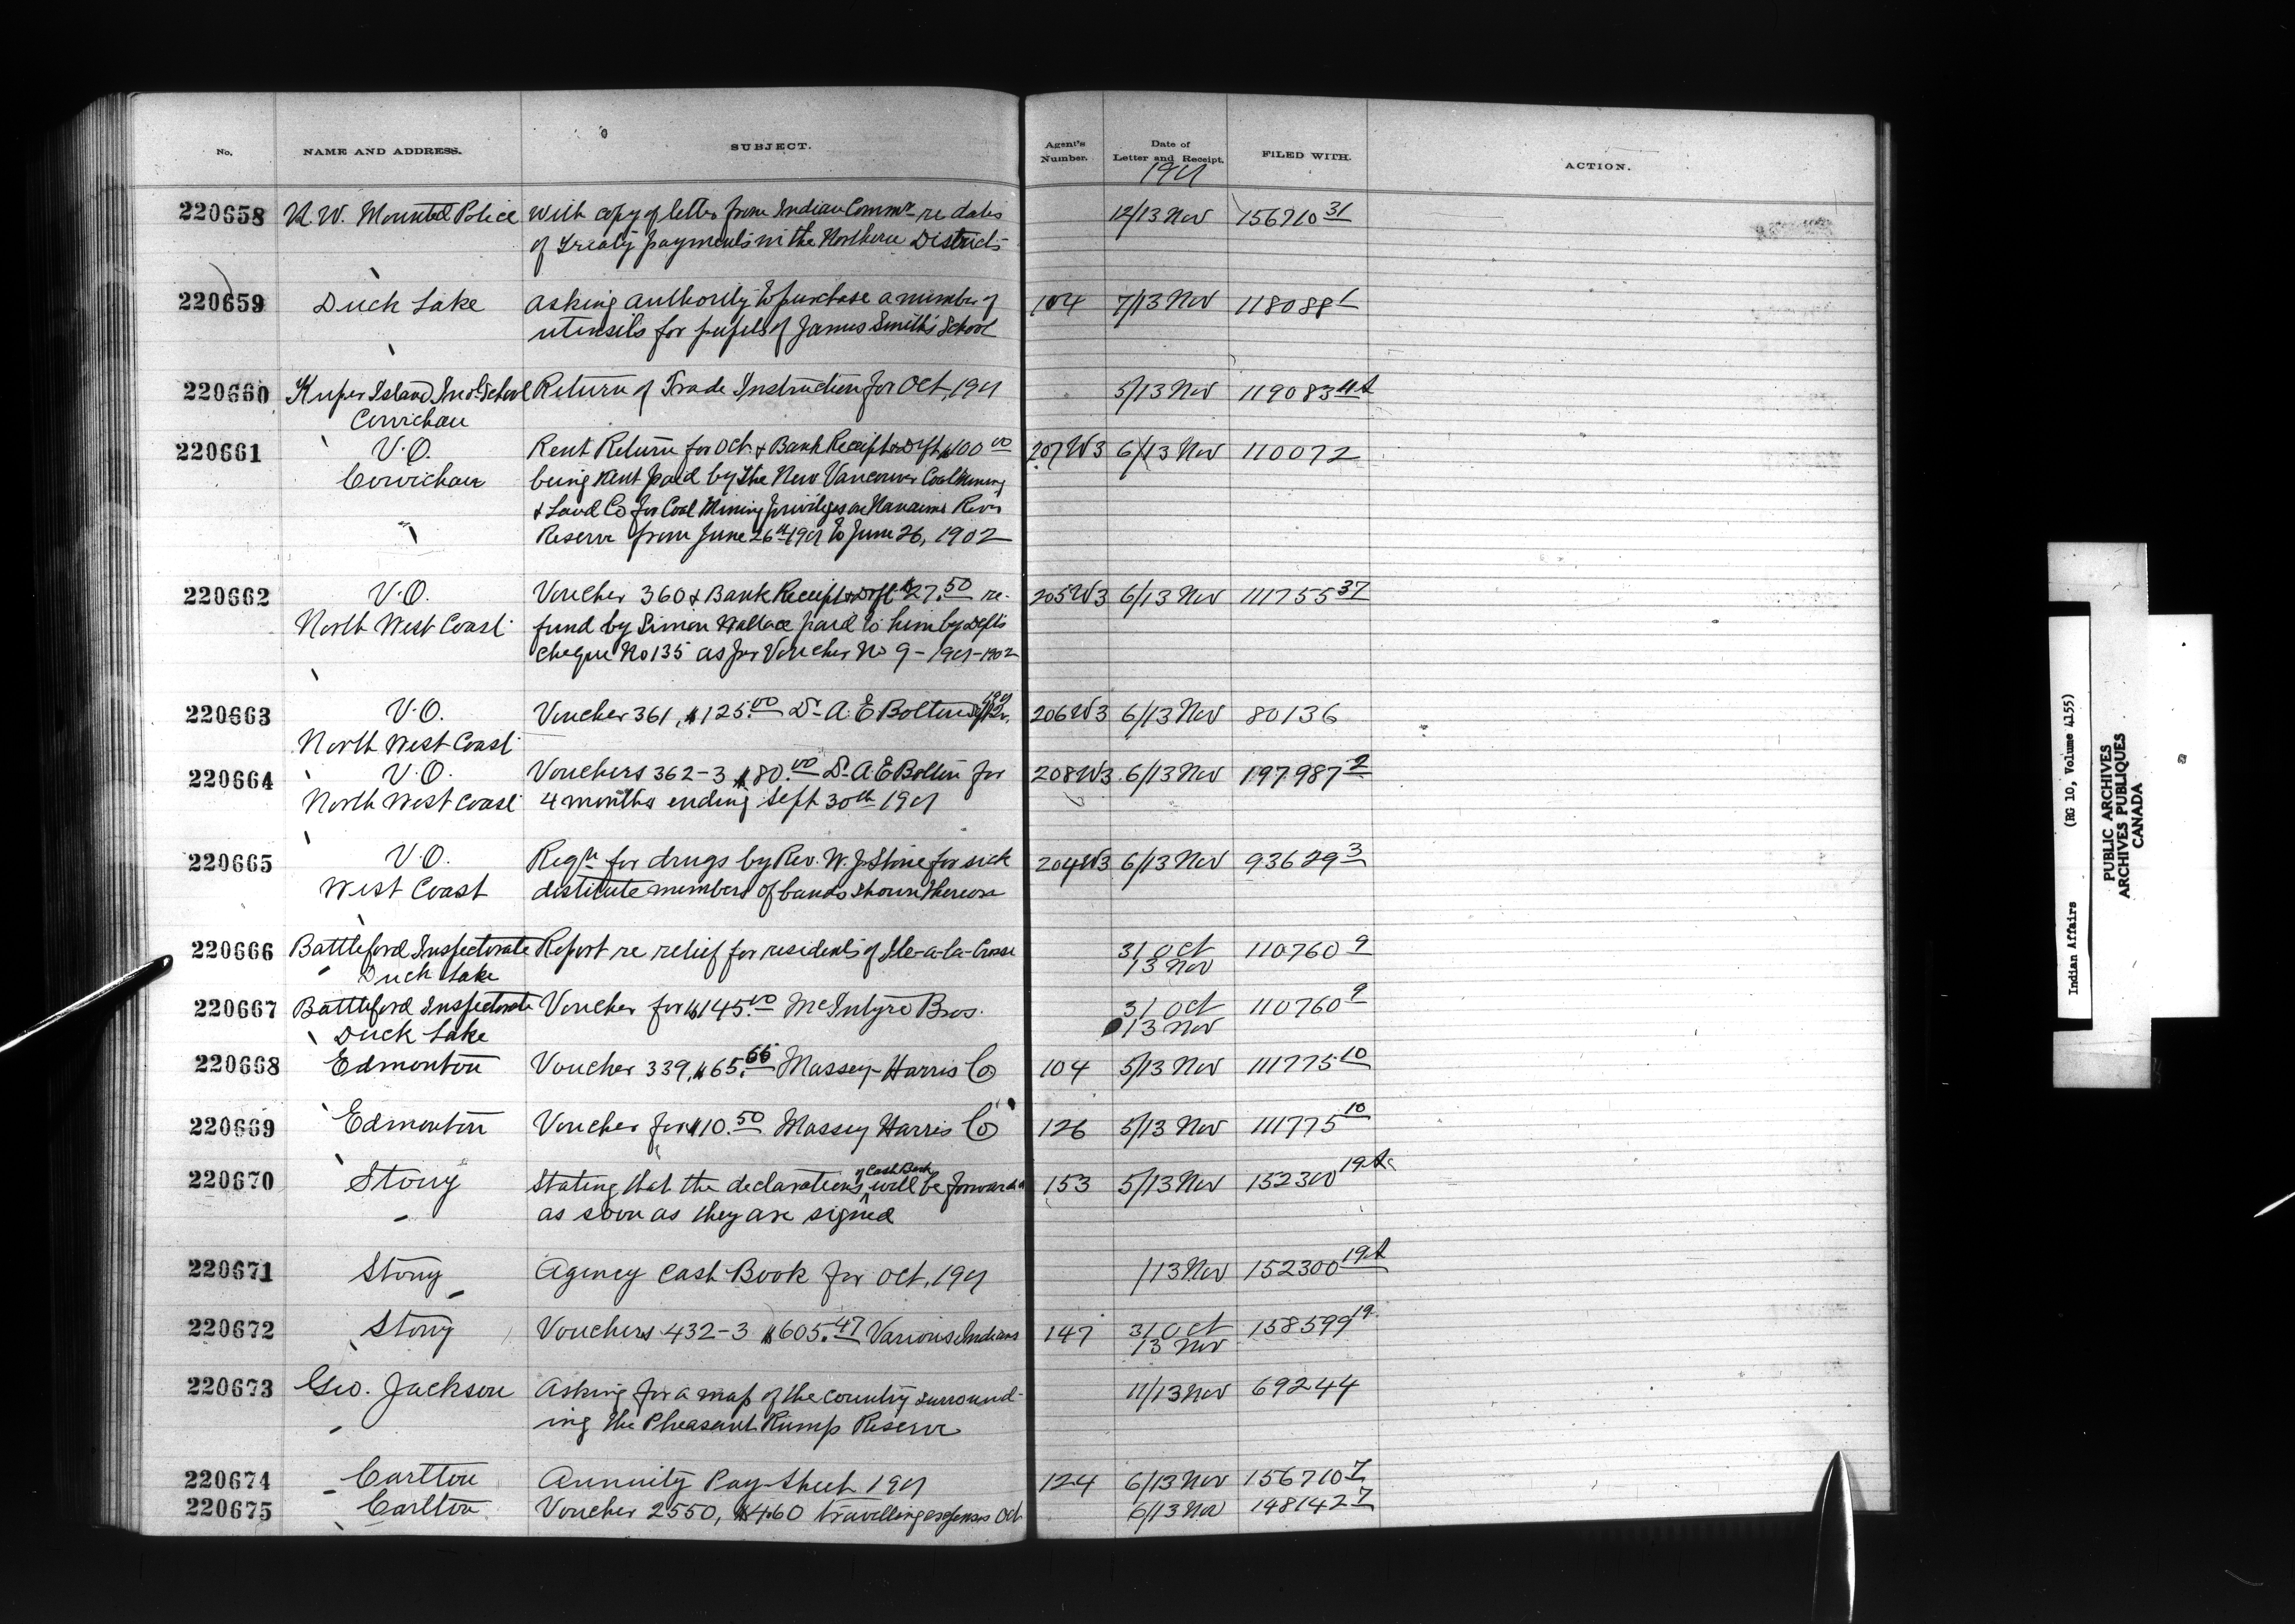 No. NAME AND ADDRESS. SUBJECT. Agent's Number. Date of Letter and Receipt. FILED WITH. ACTION.
1901
220658 N. W. Mounted Police With copy of letter from Indian Commr re dates 12/13 Nov 156710 31
of Treaty payments in the Northern Districts
220659 Duck Lake Asking authority to purchase a number of 104 7/13 Nov 118088 1
utensils for pupils of James Smith's School
220660 Kuper Island Ind. School Return of Trade Instruction for Oct, 1901 5/13 Nov 119083 11A
Cowichan
220661 V.O. Rent Return for Oct. & Bank Receipt & Dft $100 00 207 W3 6/13 Nov 110072
Cowichan being rent paid by the New Vancouver Coal Mining
& Land Co for Coal Mining privileges on Nanaimo River
Reserve from June 26th 1901 to June 26, 1902
220662 V.O. Voucher 360 & Bank Receipt & Dft $27.50 re- 205 W3 6/13 Nov 111755 37
North West Coast fund by Simon Wallace paid to him by Dept's
Cheque No 135 as per Voucher No 9 - 1901-1902
220663 V.O. Voucher 361, $125.00 Dr. A. E. Bolton 1901 206 W3 6/13 Nov 80136
North West Coast
220664 V.O. Vouchers 362-3 $80.00 Dr. A. E. Bolton for 208 W3 6/13 Nov 197987 2
North West Coast 4 months ending Sept 30th 1901
220665 V.O. Reqn for drugs by Rev. W. J. Stone for sick 204 W3 6/13 Nov 93629 3
West Coast distitute members of bands shown thereon
220666 Battleford Inspectorate Report re relief for residents of Ile-a-la-Crosse 31 Oct 110760 9
Duck Lake 13 Nov
220667 Battleford Inspectorate Voucher for $145.00 McIntyre Bros. 31 Oct 110760 9
Duck Lake 13 Nov
220668 Edmonton Voucher 339, $65.66 Massey-Harris Co 104 5/13 Nov 111775 10
220669 Edmonton Voucher for $10.50 Massey Harris Co 126 5/13 Nov 111775 10
220670 Stony Stating that the declarations of Cash Book will be forwarded 153 5/13 Nov 152300 19A
as soon as they are signed
220671 Stony Agency Cash Book for Oct, 1901 /13 Nov 152300 19A
220672 Stony Vouchers 432-3 $605.47 Various Indians 147 31 Oct 158599 19
13 Nov
220673 Geo. Jackson Asking for a map of the country surround- 11/13 Nov 69244
ing the Pheasant Rump Reserve
220674 Carlton Annuity Pay-Sheet 1901 124 6/13 Nov 156710 7
220675 Carlton Voucher 2550, $4.60 travelling expenses Oct 6/13 Nov 148142 7
Indian Affairs (RG 10, Volume 4155)
PUBLIC ARCHIVES
ARCHIVES PUBLIQUES
CANADA